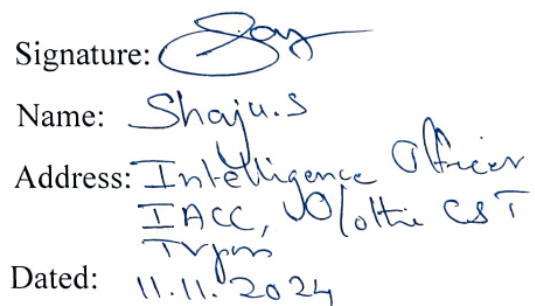 Signature:
Name: Shaju.S
Address: Intelligence Officer
IACC, O/o the CST
Tvpm
Dated: 11.11.2024